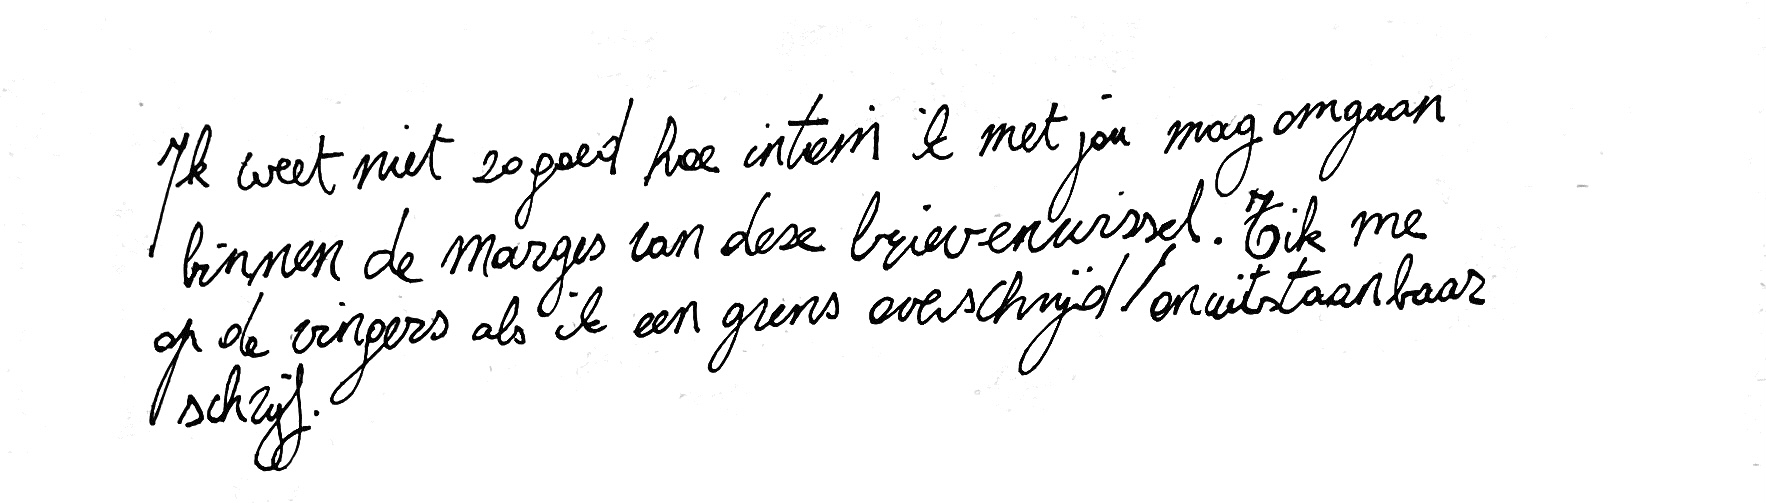 Ik weet niet zo goed hoe intiem ik met jou mag omgaan
binnen de marges van deze brievenwissel. Tik me
op de vingers als ik een grens overschrijd / onuitstaanbaar
schrijf.